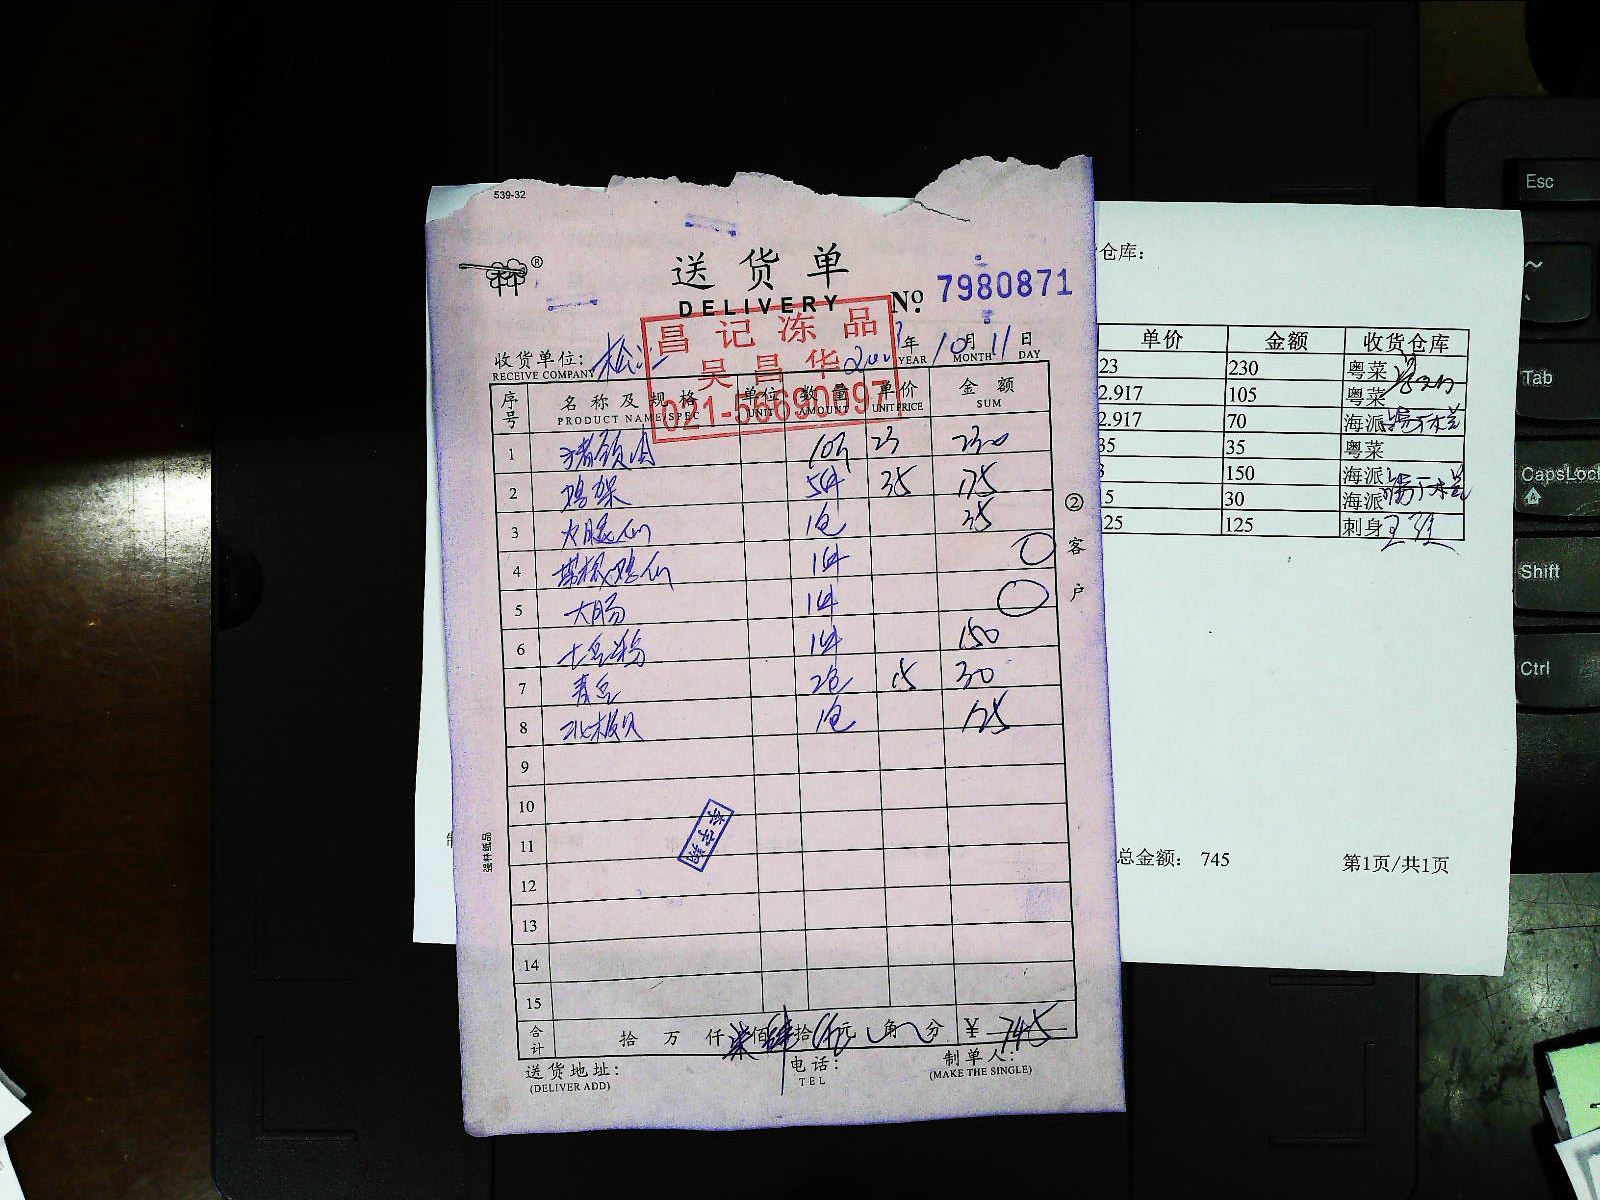 539-32
送货单
DELIVERY
№ 7980871
昌记冻品
吴昌华
021-55690097
收货单位:
RECEIVE COMPANY
年 10月 11日
YEAR MONTH DAY
序号 名称及规格 单位 数量 单价 金额
PRODUCT NAME/SPEC UNIT AMOUNT UNIT PRICE SUM
1 猪颈肉 23 230
2 鸡架 5件 35 175
3 1包 35
4 1件
5 大肠 1件
6 土豆粉 1件 150
7 青豆 2包 15 30
8 北极贝 1包 125
9
10
11
12
13
14
15
合计 拾 万 仟 柒佰 肆拾 伍元 角 分 ¥ 745
送货地址: 电话: 制单人:
(DELIVER ADD) TEL (MAKE THE SINGLE)
②客户
强林纸品
李宇翔
仓库:
单价 金额 收货仓库
23 230 粤菜
2.917 105 粤菜
2.917 70 海派
35 35 粤菜
150 海派
5 30 海派
25 125 刺身
总金额: 745 第1页/共1页
Esc
~
Tab
CapsLoc
Shift
Ctrl